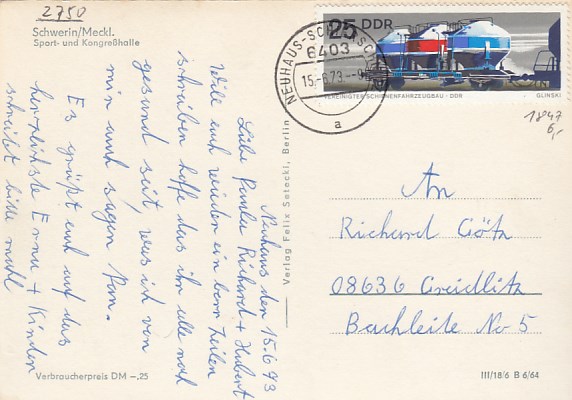 2750
Schwerin/Meckl.
Sport- und Kongreßhalle
25 DDR
VEREINIGTER SCHIENENFAHRZEUGBAU - DDR
GLINSKI
NEUHAUS-SCH
6403
15.-6.73.-9
a
1847
6,-
Neuhaus den 15.6 73
Liebe Paula Richard + Hubert
Will euch wieder ein bar Zeilen
schreiben hoffe das ihr alle noch
gesund seit, was ich von
mir auch sagen kan.
Es grüßt euch auf das
herzlichste Erna + Kinden
schreibt bitte mahl
Verlag Felix Setecki, Berlin
An
Richard Götz
08636 Greidlitz
Bachleite No 5
Verbraucherpreis DM -.25
III/18/6 B 6/64